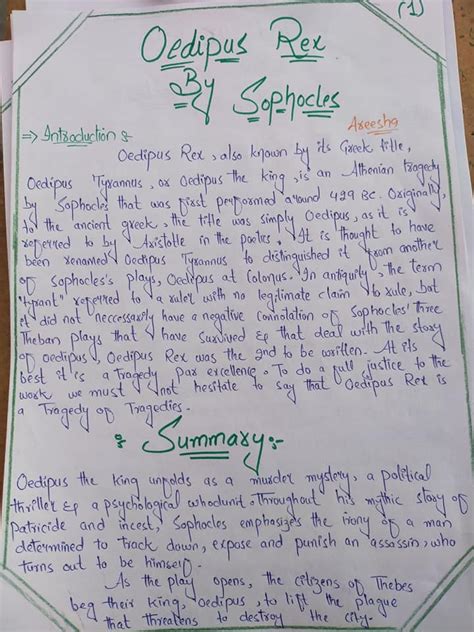 (1)
Oedipus Rex
By Sophocles
Areesha
⇒ Introduction :-
Oedipus Rex, also known by its Greek title,
Oedipus Tyrannus, or Oedipus the king, is an Athenian tragedy
by Sophocles that was first performed around 429 BC. Originally,
to the ancient greek, the title was simply Oedipus, as it is
referred to by Aristotle in the poetics. It is thought to have
been renamed Oedipus Tyrannus to distinguished it from another
of Sophocles's plays, Oedipus at Colonus. In antiquity, the term
"tyrant" referred to a ruler with no legitimate claim to rule, but
it did not necessarily have a negative connotation of Sophocles' three
Theban plays that have survived & that deal with the story
of oedipus, Oedipus Rex was the 2nd to be written. At its
best it is a Tragedy par excellence. To do a full justice to the
work we must not hesitate to say that Oedipus Rex is
a Tragedy of Tragedies.
:- Summary :-
Oedipus the king unfolds as a murder mystery, a political
thriller & a psychological whodunit. Throughout his mythic story of
Patricide and incest, Sophocles emphasizes the irony of a man
determined to track down, expose and punish an assassin, who
turns out to be himself.
As the play opens, the citizens of Thebes
beg their king, Oedipus, to lift the plague
that threatens to destroy the city.